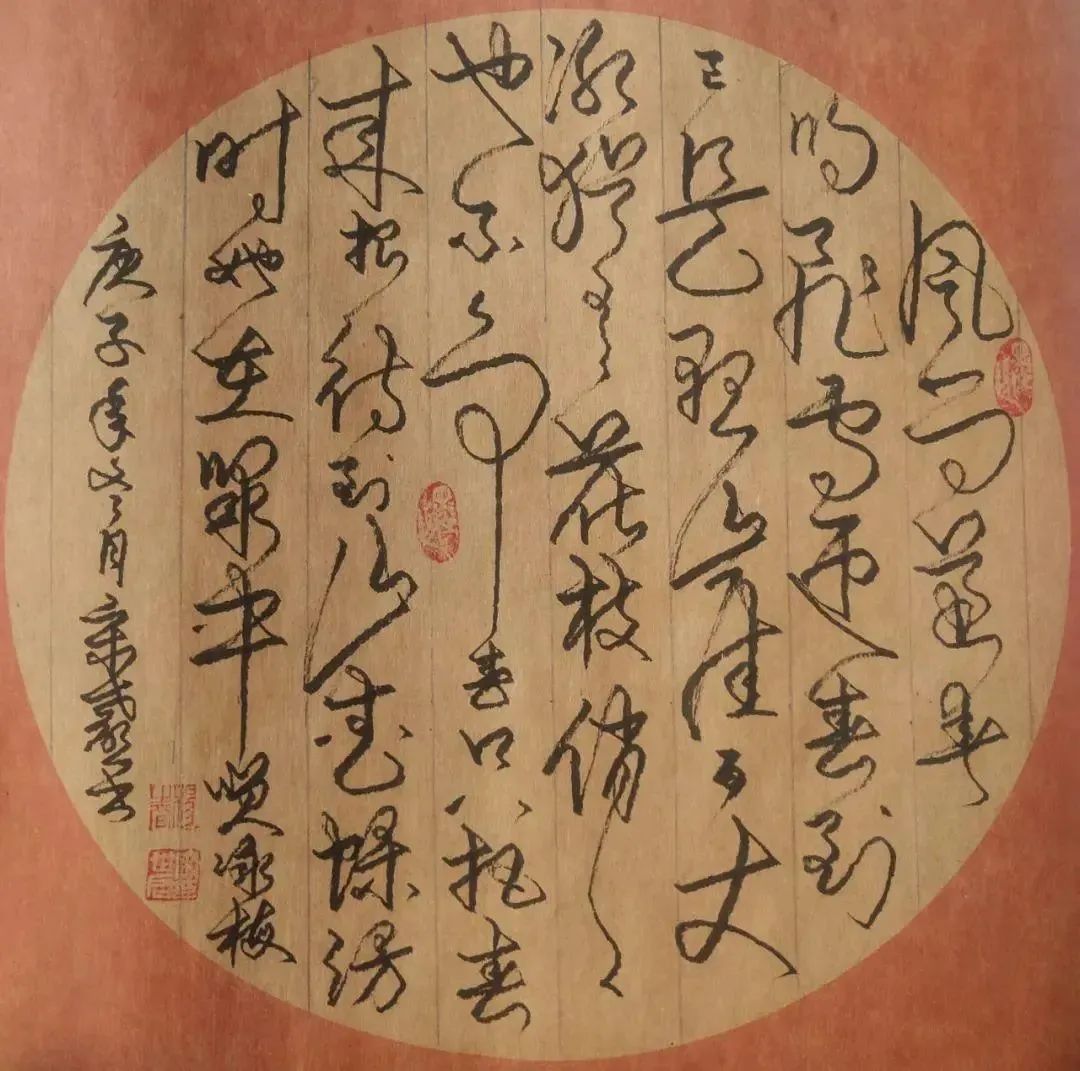 风雨送春
归飞雪迎春到
已是悬崖百丈
冰犹有花枝俏俏
也不争春只把春
来报待到山花烂漫
时她在丛中咲咏梅
庚子年冬月 书